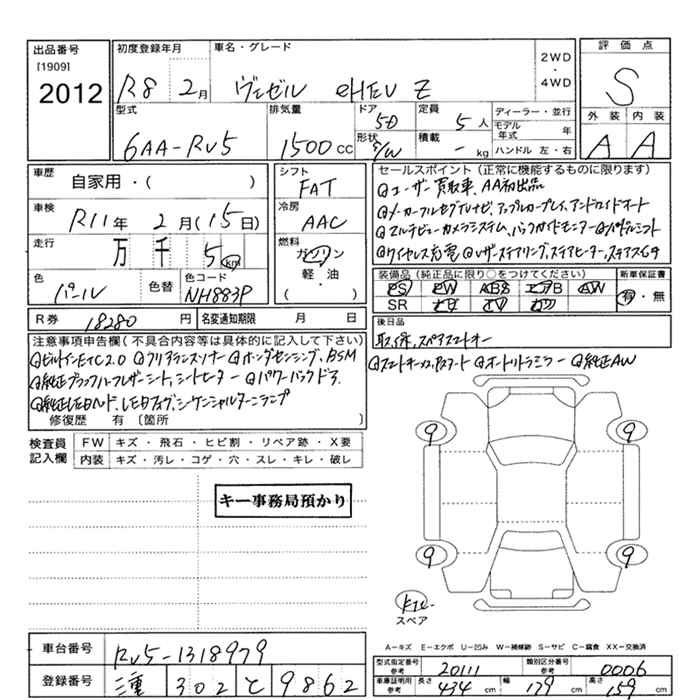 出品番号
[1909]
2012
初度登録年月
R8 2月
車名・グレード
ヴェゼル eHEV Z
2WD
・
4WD
評価点
S
外装 内装
A A
型式
6AA-RV5
排気量
1500 CC
ドア
5D
形状
S/W
定員
5 人
積載
- kg
ディーラー・並行
モデル年式 年
ハンドル 左・右
車歴
自家用・( )
車検
R11年 2月(15日)
走行
万 千 5 km
色
パール
色替
色コード
NH883P
シフト
FAT
冷房
AAC
燃料
ガソリン
軽・油
( )
セールスポイント(正常に機能するものに限ります)
◎ユーザー買取車、AA初出品
◎メーカーフルセグTVナビ、アップルカープレイ、アンドロイドオート
◎マルチビューカメラシステム、バックガイドモニター
◎ワイヤレス充電 ◎レザーステアリング、ステアヒーター、ステアスイッチ
装備品(純正品に限り○をつけてください)
PS PW ABS エアB AW
SR ナビ TV カワ
新車保証書
有・無
R券 18280 円
名変通知期限 月 日
後日品
取説、スペアスマートキー
注意事項申告欄(不具合内容等は具体的に記入して下さい)
◎ビルトインETC2.0 ◎クリアランスソナー ◎ホンダセンシング、BSM
◎純正ブラックハーフレザーシート、シートヒーター ◎パワーバックドア
◎純正LEDヘッド、LEDフォグ、シーケンシャルターンランプ
修復歴 有 〔箇所 〕
◎スマートキー×2、Pスタート ◎オートリトラミラー ◎純正AW
検査員記入欄
FW キズ・飛石・ヒビ割・リペア跡・X要
内装 キズ・汚レ・コゲ・穴・スレ・キレ・破レ
キー事務局預かり
9 9
9 9
スペア
A-キズ E-エクボ U-凹み W-補修跡 S-サビ C-腐食 XX-交換済
車台番号
RV5-1318979
登録番号
三重 302 と 9862
型式指定番号
参考
20111
類別区分番号
参考
0006
車庫証明用
参考
長さ 434 cm
幅 179 cm
高さ 159 cm